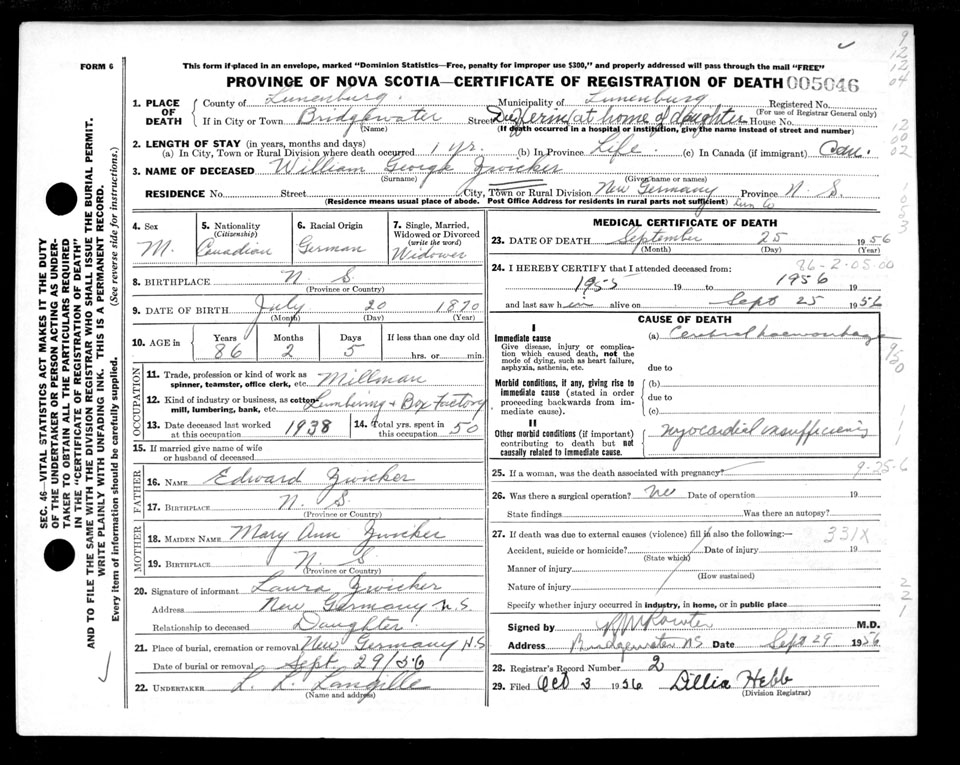 FORM 6
This form if placed in an envelope, marked "Dominion Statistics—Free, penalty for improper use $300," and properly addressed will pass through the mail "FREE"
PROVINCE OF NOVA SCOTIA—CERTIFICATE OF REGISTRATION OF DEATH 005046
1. PLACE OF DEATH
County of Lunenburg. Municipality of Lunenburg Registered No.
(For use of Registrar General only)
If in City or Town Bridgewater Street at home of daughter House No.
(Name) (If death occurred in a hospital or institution, give the name instead of street and number)
2. LENGTH OF STAY (in years, months and days)
(a) In City, Town or Rural Division where death occurred 1 yr. (b) In Province Life. (c) In Canada (if immigrant) Can.
3. NAME OF DECEASED William George Zwicker
(Surname) (Given name or names)
RESIDENCE No. Street City, Town or Rural Division New Germany Province N. S.
(Residence means usual place of abode. Post Office Address for residents in rural parts not sufficient) Lun Co
4. Sex M.
5. Nationality (Citizenship) Canadian
6. Racial Origin German
7. Single, Married, Widowed or Divorced (write the word) Widower
8. BIRTHPLACE N. S
(Province or Country)
9. DATE OF BIRTH July 20 1870
(Month) (Day) (Year)
10. AGE in Years 86 Months 2 Days 5 If less than one day old hrs. or min.
OCCUPATION
11. Trade, profession or kind of work as spinner, teamster, office clerk, etc. Millman
12. Kind of industry or business, as cotton-mill, lumbering, bank, etc. Lumbering + Box Factory
13. Date deceased last worked at this occupation 1938
14. Total yrs. spent in this occupation 50
15. If married give name of wife or husband of deceased
FATHER
16. NAME Edward Zwicker
17. BIRTHPLACE N. S.
(Province or Country)
MOTHER
18. MAIDEN NAME Mary Ann Zwicker
19. BIRTHPLACE N. S
(Province or Country)
20. Signature of informant Laura Zwicker
Address New Germany N.S
Relationship to deceased Daughter
21. Place of burial, cremation or removal New Germany N.S
Date of burial or removal Sept. 29/56
22. UNDERTAKER L. L. Langille
(Name and address)
MEDICAL CERTIFICATE OF DEATH
23. DATE OF DEATH September 25 1956
(Month) (Day) (Year)
86-2-05-00
24. I HEREBY CERTIFY that I attended deceased from:
1955 19 to 1956 19
and last saw him alive on Sept 25 1956
CAUSE OF DEATH
I
Immediate cause
Give disease, injury or complication which caused death, not the mode of dying, such as heart failure, asphyxia, asthenia, etc.
(a) Cerebral haemorrhage
due to
Morbid conditions, if any, giving rise to immediate cause (stated in order proceeding backwards from immediate cause).
(b)
due to
(c)
II
Other morbid conditions (if important) contributing to death but not causally related to immediate cause.
Myocardial insufficiency
25. If a woman, was the death associated with pregnancy?
9-25-6
26. Was there a surgical operation? No Date of operation 19
State findings Was there an autopsy?
27. If death was due to external causes (violence) fill in also the following:— 331X
Accident, suicide or homicide? Date of injury 19
(State which)
Manner of injury
(How sustained)
Nature of injury
Specify whether injury occurred in industry, in home, or in public place
Signed by M.D.
Address Bridgewater NS Date Sept 29 1956
28. Registrar's Record Number 2
29. Filed Oct 3 1956 Dillia Hebb
(Division Registrar)
SEC. 46—VITAL STATISTICS ACT MAKES IT THE DUTY
OF THE UNDERTAKER OR PERSON ACTING AS UNDER-
TAKER TO OBTAIN ALL THE PARTICULARS REQUIRED
IN THE "CERTIFICATE OF REGISTRATION OF DEATH"
AND TO FILE THE SAME WITH THE DIVISION REGISTRAR WHO SHALL ISSUE THE BURIAL PERMIT.
WRITE PLAINLY WITH UNFADING INK. THIS IS A PERMANENT RECORD.
Every item of information should be carefully supplied. (See reverse side for instructions.)